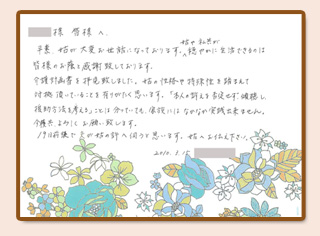 様 皆様へ
姑や私共が
平素、姑が大変お世話になっております。穏やかに生活できるのは
皆様のお蔭と感謝致しております。
介護計画書を拝見致しました。姑の性格や特殊性を踏まえて
対処頂いていることを有りがたく思います。「本人の訴えを否定せず傾聴し
援助方法を考える」ことは分っていても、家族にはなかなか実践出来ません。
今後共、よろしくお願い致します。
19日前後で 夫が姑の許へ伺うと思います。姑へお伝え下さい。
2010.1.15